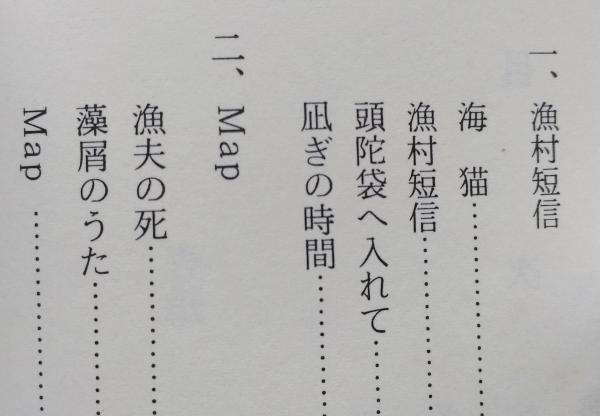 一、漁村短信
海　猫……………
漁村短信……………
頭陀袋へ入れて……
凪ぎの時間…………
二、Map
漁夫の死……………
藻屑のうた…………
Map……………